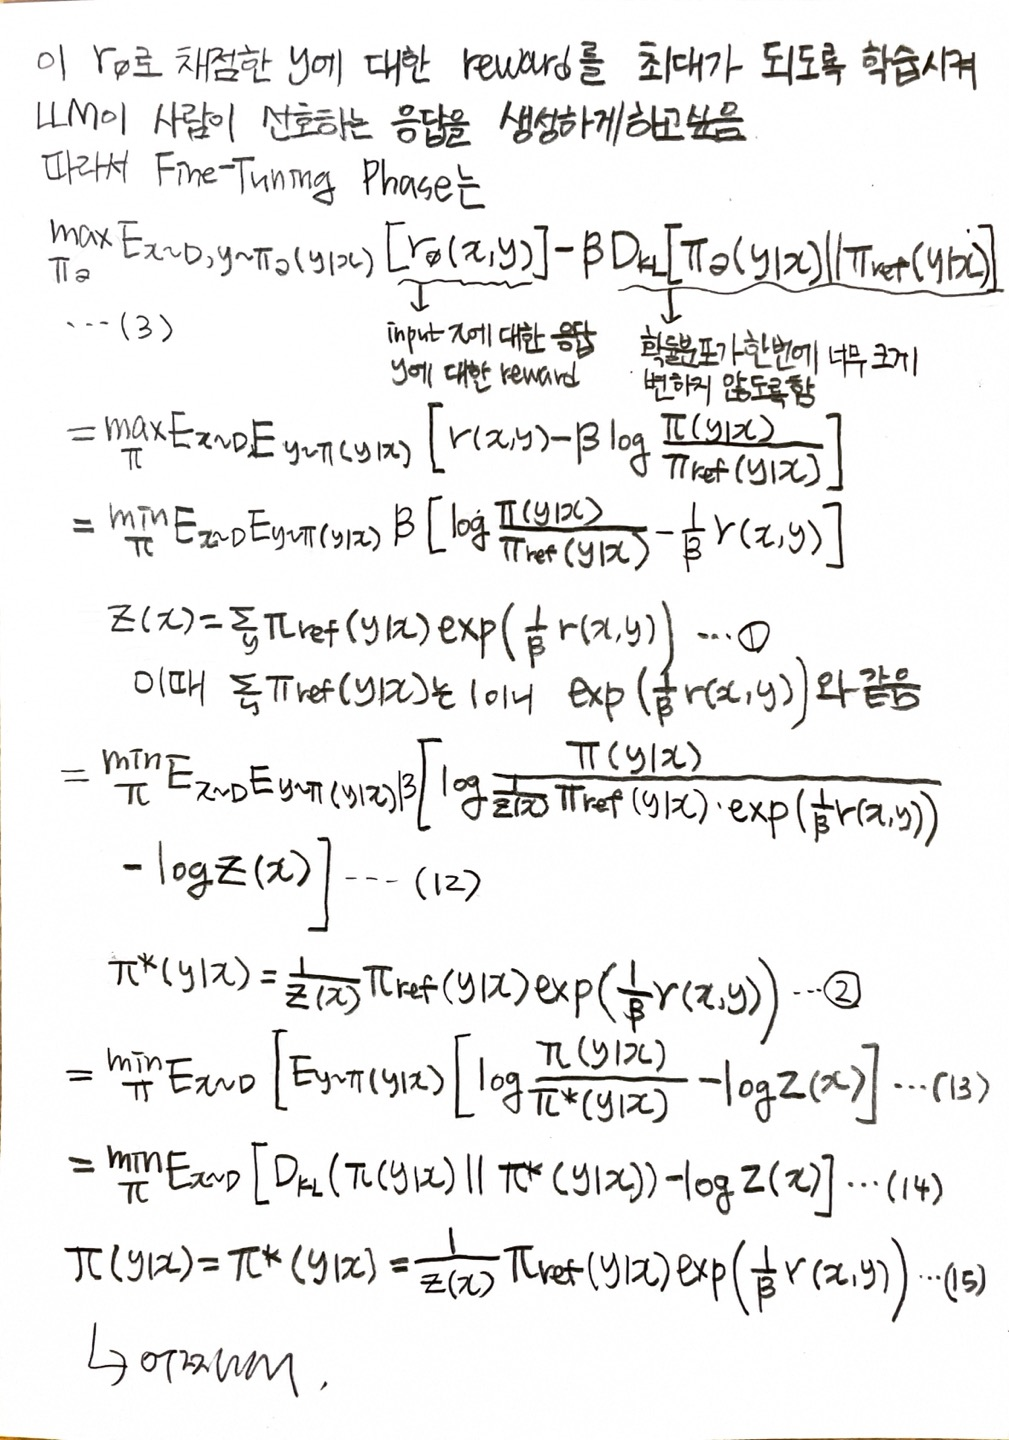 이 rø로 채점한 y에 대한 reward를 최대가 되도록 학습시켜
LLM이 사람이 선호하는 응답을 생성하게하고싶음
따라서 Fine-Tuning Phase는
max_πθ E_x~D,y~πθ(y|x) [rø(x,y)] - β D_KL[πθ(y|x)||πref(y|x)]
…(3)
↓ input x에 대한 응답
y에 대한 reward
↓ 확률분포가 한번에 너무 크게
변하지 않도록 함
= max_π E_x~D, E_y~π(y|x) [r(x,y) - β log π(y|x) / πref(y|x)]
= min_π E_x~D E_y~π(y|x) β [log π(y|x) / πref(y|x) - 1/β r(x,y)]
Z(x) = Σ_y πref(y|x) exp(1/β r(x,y)) …①
이때 Σ_y πref(y|x)는 1이니 exp(1/β r(x,y))와 같음
= min_π E_x~D E_y~π(y|x) β [log π(y|x) / 1/Z(x) πref(y|x)·exp(1/β r(x,y))
- log Z(x)] … (12)
π*(y|x) = 1/Z(x) πref(y|x) exp(1/β r(x,y)) …②
= min_π E_x~D [E_y~π(y|x) [log π(y|x) / π*(y|x) - log Z(x)] …(13)
= min_π E_x~D [D_KL(π(y|x) || π*(y|x)) - log Z(x)] …(14)
π(y|x) = π*(y|x) = 1/Z(x) πref(y|x) exp(1/β r(x,y)) …(15)